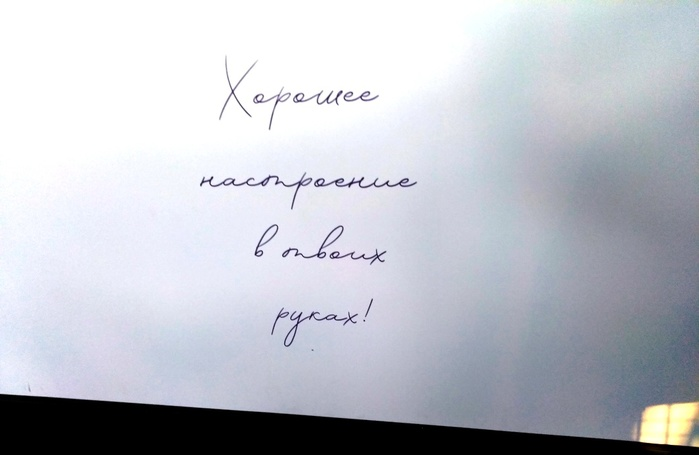 Хорошее
настроение
в твоих
руках!